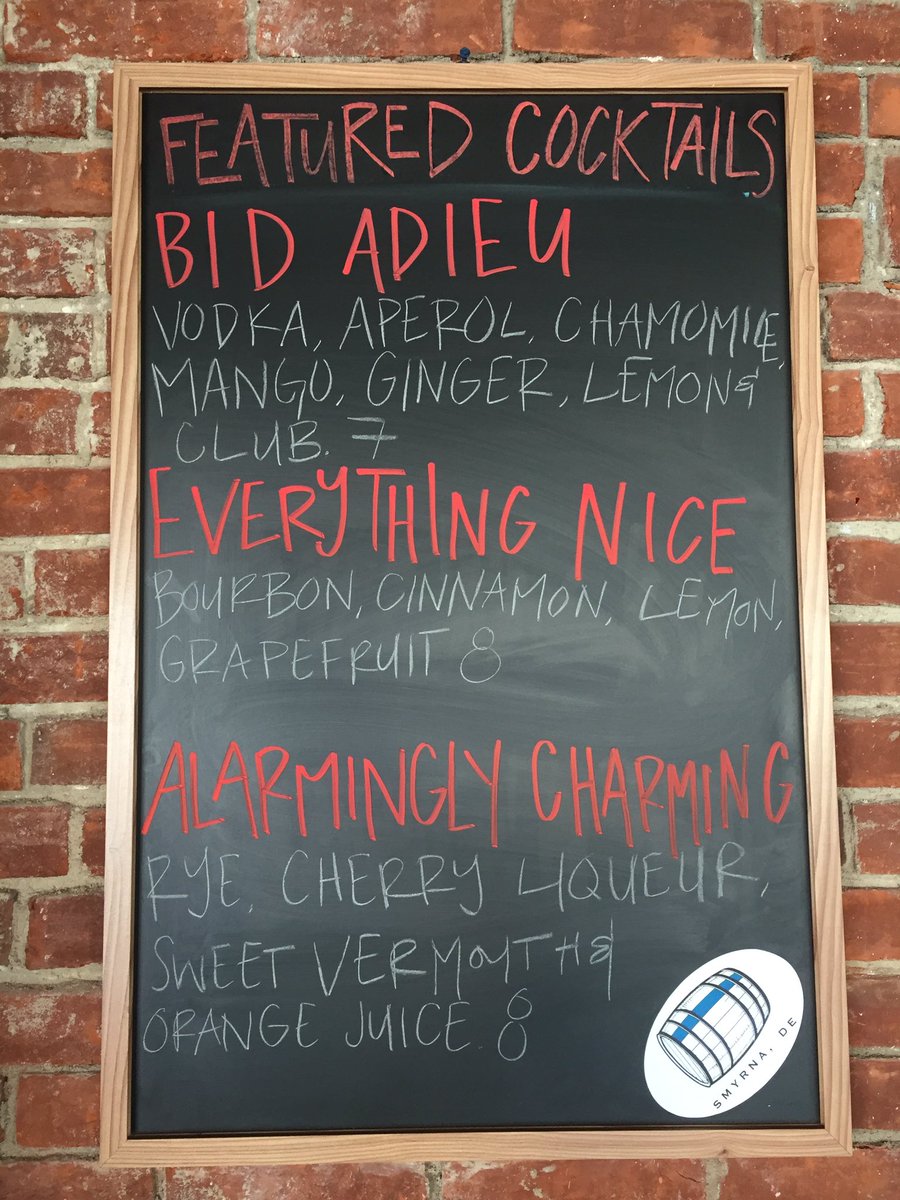 FEATURED COCKTAILS
BID ADIEU
VODKA, APEROL, CHAMOMILE,
MANGO, GINGER, LEMON &
CLUB. 7
EVERYTHING NICE
BOURBON, CINNAMON, LEMON,
GRAPEFRUIT 8
ALARMINGLY CHARMING
RYE, CHERRY LIQUEUR,
SWEET VERMOUTH &
ORANGE JUICE. 8
SMYRNA, DE